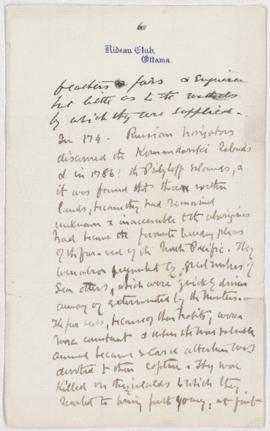 6
Rideau Club,
Ottawa.
feathers & furs &
but little as to the
by which they are supplied.
In 174 . Russian navigators
discovered the Komandorski Islands
& in 1786 the Pribyloff Islands, &
it was found that these
lands, because they had remained
unknown & inaccessible to the aborigines
had become the favourite breeding places
of the fur-seal of the North Pacific. They
were also frequented by great numbers of
Sea otters, which were quickly driven
away or exterminated by the hunters.
The fur seals, because of their habits, were
more constant & when the more valuable
animal became scarce attention was
devoted to their capture. They were
killed on the islands to which they
resorted to bring forth young, at first